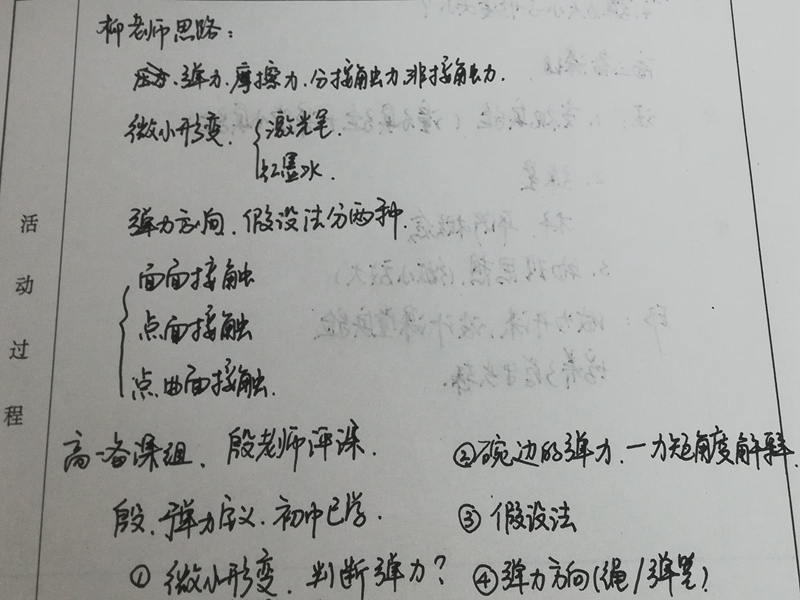 柳老师思路：
弹力、摩擦力、分接触力、非接触力.
微小形变. 激光笔.
红墨水.
弹力方向、假设法分两种.
面面接触
点面接触
点曲面接触.
活动过程
高一备课组、殷老师评课.
殷、弹力定义、初中已学.
① 微小形变、判断弹力？
②碗边的弹力、一力矩角度解释.
③ 假设法
④弹力方向(绳/弹簧)